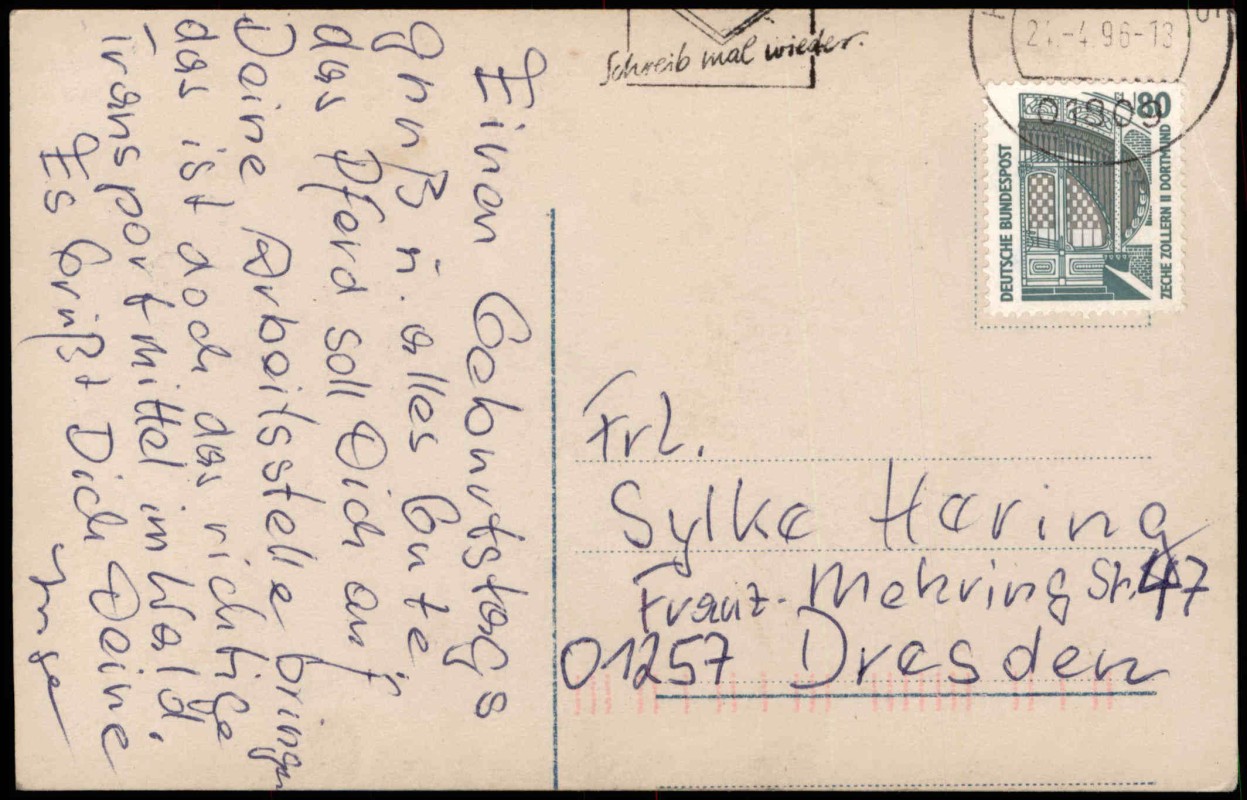 Einen Geburtstags
gruß u. alles Gute,
das Pferd soll Dich auf
Deine Arbeitsstelle bringen
das ist doch das richtige
Transportmittel im Wald.
Es Grüßt Dich Deine
Inge
Schreib mal wieder.
24.-4.96-18
01309
80
DEUTSCHE BUNDESPOST
ZECHE ZOLLERN II DORTMUND
Frl.
Sylke Haring
Franz-Mehring Str. 47
01257 Dresden